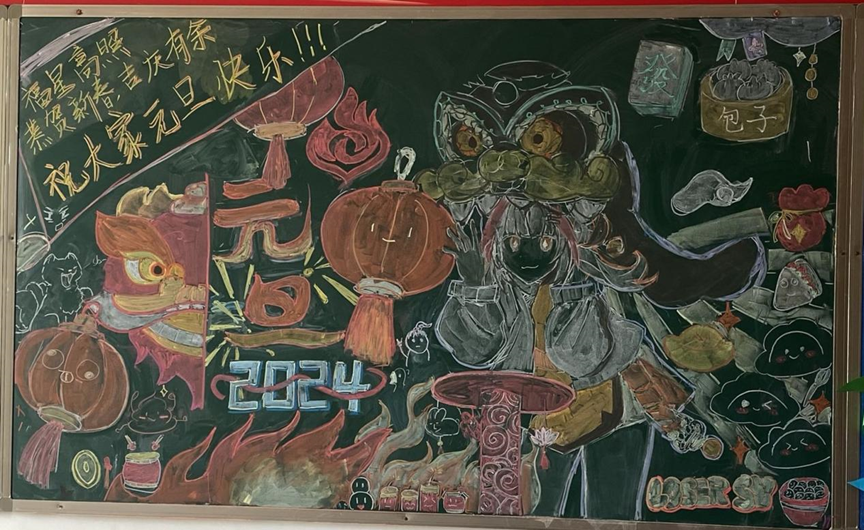 福星高照
恭贺新春 吉庆有余
祝大家元旦快乐!!!
元
旦
2024
包子